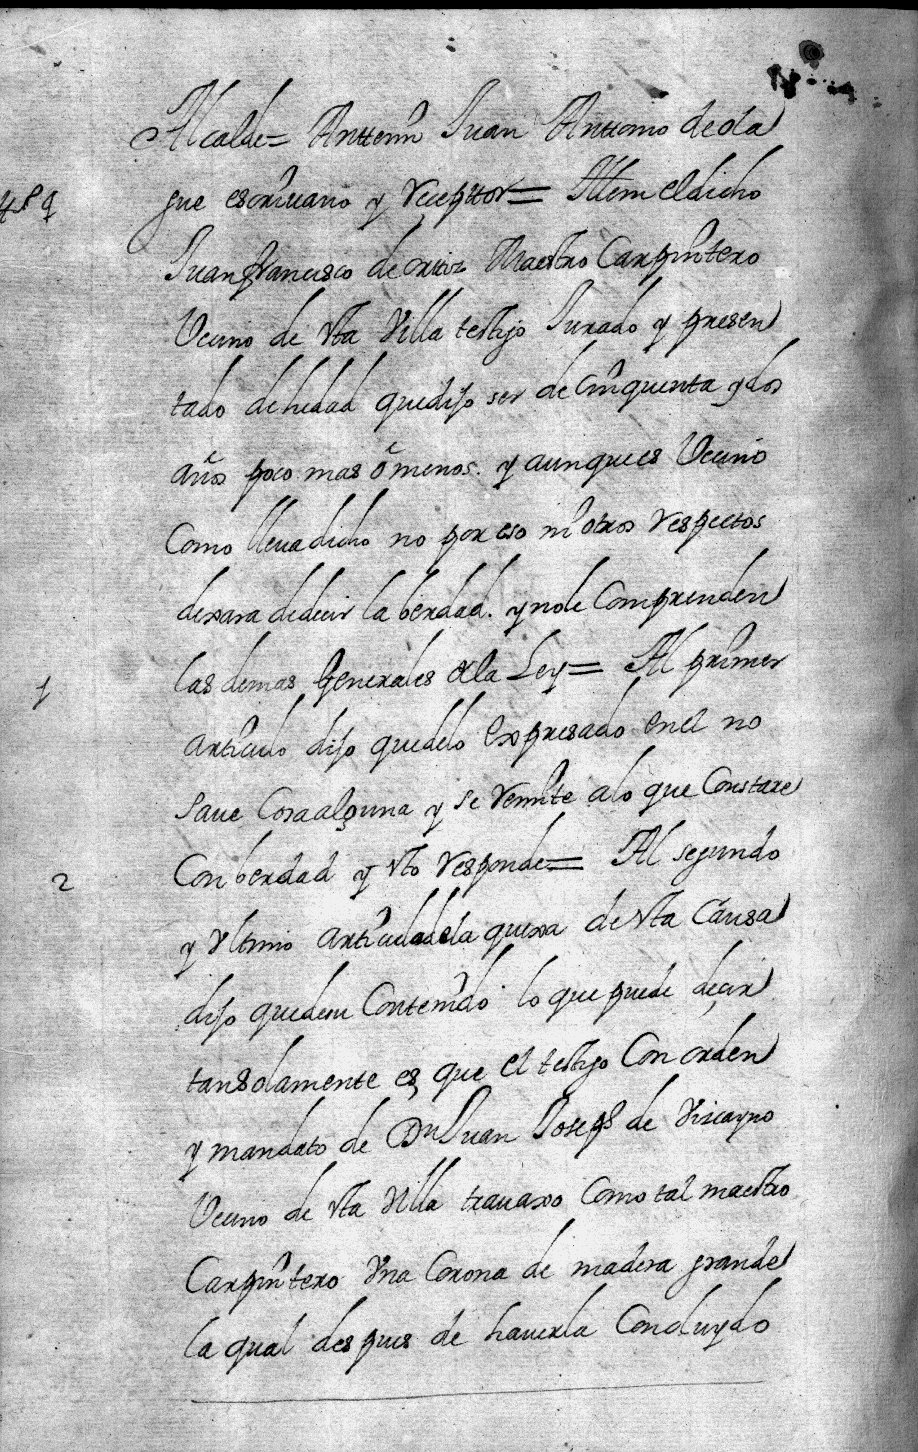 Alcalde= Anttemi Juan Anttonio de ola
gue escriuano y Receptor= Ittem el dicho
Juan francisco de ortiz Maestro Carpintero
Vecino de esta Villa testigo Jurado y presen
tado de hedad que dijo ser de Cinquenta y dos
años poco mas ó menos. y aunque es Vecino
Como lleua dicho no por eso ni otros respectos
dexara de decir la berdad. y no le Comprenden
1 las demas Generales de la Ley= Al primer
articulo dijo que de lo Expresado en el no
saue Cosa alguna y se Remite a lo que Constare
2 Con berdad y esto Responde= Al segundo
y Vltimo articulo de la quexa de esta Causa
dijo que de su Contenido lo que puede decir
tan solamente es que el testigo Con orden
y mandato de Dn Juan Joseph de Viscayno
Vecino de esta Villa trauaxo Como tal maestro
Carpintero Vna Corona de madera grande
la qual despues de hauerla Concluydo